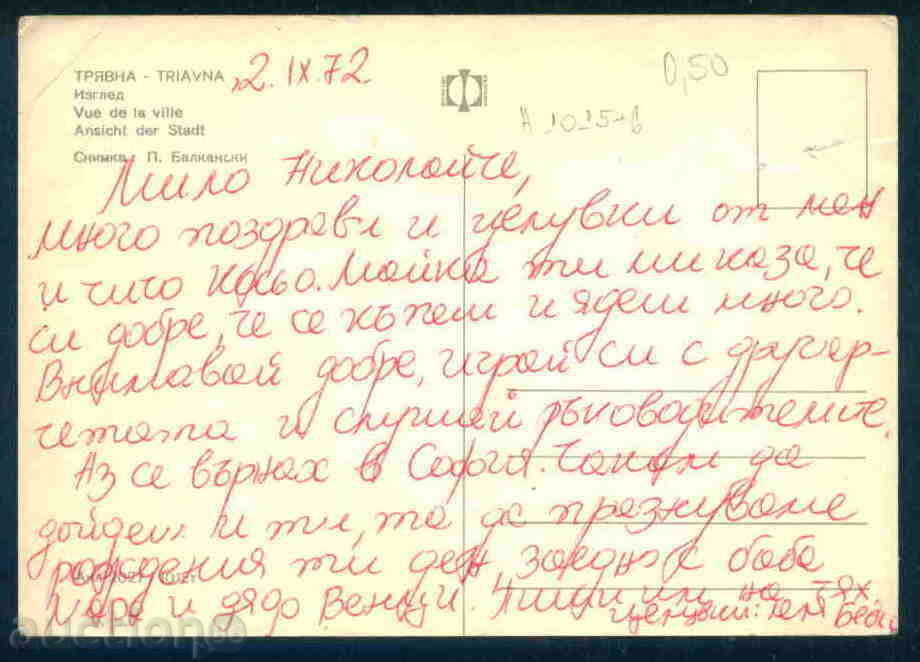 ТРЯВНА - TRIAVNA
Изглед
Vue de la ville
Ansicht der Stadt
Снимка П. Балкански
2.IX.72
0,50
Мило Николайче,
много поздрави и целувки от мен
и чичо Кольо. Майка ти ми каза, че
си добре, че се къпеш и ядеш много.
Внимавай добре, играй си с другар-
четата и слушай ръководителите.
Аз се върнах в София. Чакам да
дойдеш и ти, та да празнуваме
рождения ти ден заедно с баба
и дядо Венци. Пиши им на тях.
целувки: